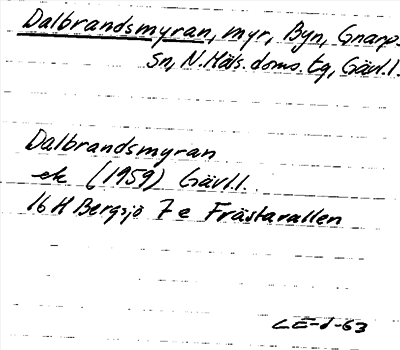 Dalbrandsmyran, myr, Byn, Gnarps
sn, N. Häls. doms. tg, Gävl.l.
Dalbrandsmyran
ek (1959) Gävl.l.
16 H Bergsjö 7 e Frästavallen
CE-d-63